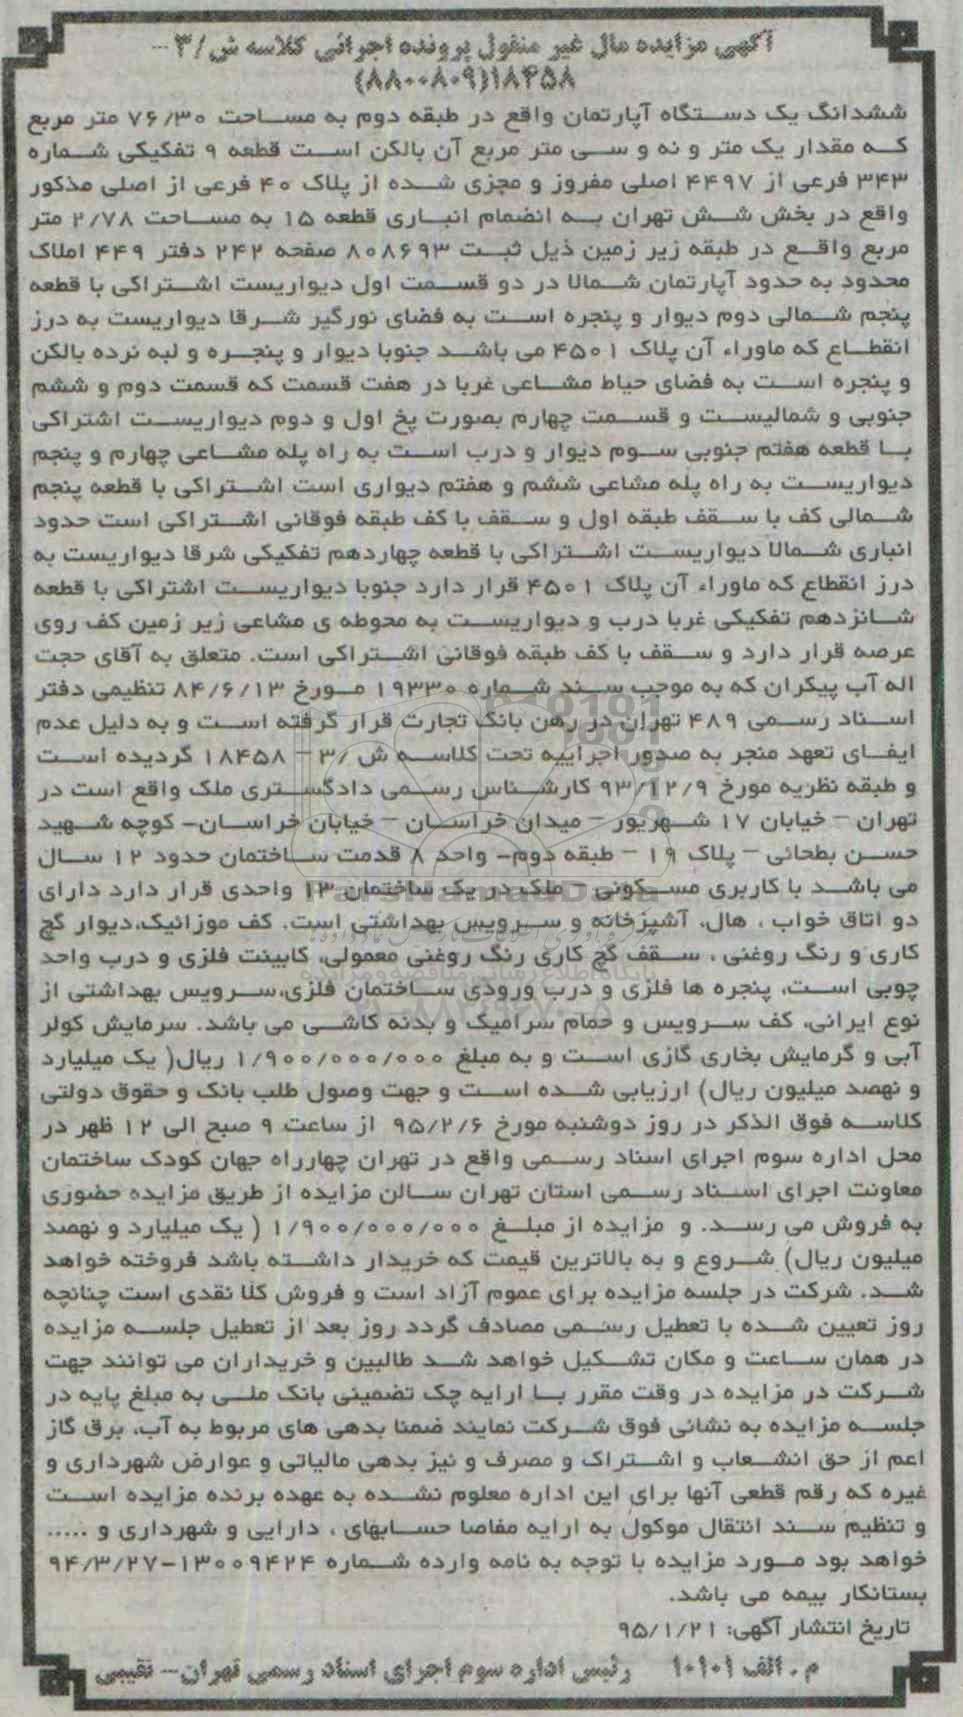 آگهی مزایده مال غیر منقول پرونده اجرائی کلاسه ش/۳---
۱۸۴۵۸(۸۸۰۰۸۰۹)
ششدانگ یک دستگاه آپارتمان واقع در طبقه دوم به مساحت ۷۶/۳۰ متر مربع
که مقدار یک متر و نه و سی متر مربع آن بالکن است قطعه ۹ تفکیکی شماره
۳۴۳ فرعی از ۴۴۹۷ اصلی مفروز و مجزی شده از پلاک ۴۰ فرعی از اصلی مذکور
واقع در بخش شش تهران به انضمام انباری قطعه ۱۵ به مساحت ۲/۷۸ متر
مربع واقع در طبقه زیر زمین ذیل ثبت ۸۰۸۶۹۳ صفحه ۲۴۲ دفتر ۴۴۹ املاک
محدود به حدود آپارتمان شمالا در دو قسمت اول دیواریست اشتراکی با قطعه
پنجم شمالی دوم دیوار و پنجره است به فضای نورگیر شرقا دیواریست به درز
انقطاع که ماوراء آن پلاک ۴۵۰۱ می باشد جنوبا دیوار و پنجره و لبه نرده بالکن
و پنجره است به فضای حیاط مشاعی غربا در هفت قسمت که قسمت دوم و ششم
جنوبی و شمالیست و قسمت چهارم بصورت پخ اول و دوم دیواریست اشتراکی
با قطعه هفتم جنوبی سوم دیوار و درب است به راه پله مشاعی چهارم و پنجم
دیواریست به راه پله مشاعی ششم و هفتم دیواری است اشتراکی با قطعه پنجم
شمالی کف با سقف طبقه اول و سقف با کف طبقه فوقانی اشتراکی است حدود
انباری شمالا دیواریست اشتراکی با قطعه چهاردهم تفکیکی شرقا دیواریست به
درز انقطاع که ماوراء آن پلاک ۴۵۰۱ قرار دارد جنوبا دیواریست اشتراکی با قطعه
شانزدهم تفکیکی غربا درب و دیواریست به محوطه ی مشاعی زیر زمین کف روی
عرصه قرار دارد و سقف با کف طبقه فوقانی اشتراکی است. متعلق به آقای حجت
اله آب پیکران که به موجب سند شماره ۱۹۳۳۰ مورخ ۸۴/۶/۱۳ تنظیمی دفتر
اسناد رسمی ۴۸۹ تهران در رهن بانک تجارت قرار گرفته است و به دلیل عدم
ایفای تعهد منجر به صدور اجراییه تحت کلاسه ش /۳ – ۱۸۴۵۸ گردیده است
و طبقه نظریه مورخ ۹۳/۱۲/۹ کارشناس رسمی دادگستری ملک واقع است در
تهران – خیابان ۱۷ شهریور – میدان خراسان – خیابان خراسان- کوچه شهید
حسن بطحائی – پلاک ۱۹ – طبقه دوم- واحد ۸ قدمت ساختمان حدود ۱۲ سال
می باشد با کاربری مسکونی – ملک در یک ساختمان ۱۳ واحدی قرار دارد دارای
دو اتاق خواب ، هال، آشپزخانه و سرویس بهداشتی است. کف موزائیک،دیوار گچ
کاری و رنگ روغنی ، سقف گچ کاری رنگ روغنی معمولی، کابینت فلزی و درب واحد
چوبی است، پنجره ها فلزی و درب ورودی ساختمان فلزی،سرویس بهداشتی از
نوع ایرانی، کف سرویس و حمام سرامیک و بدنه کاشی می باشد. سرمایش کولر
آبی و گرمایش بخاری گازی است و به مبلغ ۱/۹۰۰/۰۰۰/۰۰۰ ریال( یک میلیارد
و نهصد میلیون ریال) ارزیابی شده است و جهت وصول طلب بانک و حقوق دولتی
کلاسه فوق الذکر در روز دوشنبه مورخ ۹۵/۲/۶ از ساعت ۹ صبح الی ۱۲ ظهر در
محل اداره سوم اجرای اسناد رسمی واقع در تهران چهارراه جهان کودک ساختمان
معاونت اجرای اسناد رسمی استان تهران سالن مزایده از طریق مزایده حضوری
به فروش می رسد. و مزایده از مبلغ ۱/۹۰۰/۰۰۰/۰۰۰ ( یک میلیارد و نهصد
میلیون ریال) شروع و به بالاترین قیمت که خریدار داشته باشد فروخته خواهد
شد. شرکت در جلسه مزایده برای عموم آزاد است و فروش کلا نقدی است چنانچه
روز تعیین شده با تعطیل رسمی مصادف گردد روز بعد از تعطیل جلسه مزایده
در همان ساعت و مکان تشکیل خواهد شد طالبین و خریداران می توانند جهت
شرکت در مزایده در وقت مقرر با ارایه چک تضمینی بانک ملی به مبلغ پایه در
جلسه مزایده به نشانی فوق شرکت نمایند ضمنا بدهی های مربوط به آب، برق گاز
اعم از حق انشعاب و اشتراک و مصرف و نیز بدهی مالیاتی و عوارض شهرداری و
غیره که رقم قطعی آنها برای این اداره معلوم نشده به عهده برنده مزایده است
و تنظیم سند انتقال موکول به ارایه مفاصا حسابهای ، دارایی و شهرداری و .....
خواهد بود مورد مزایده با توجه به نامه وارده شماره ۱۳۰۰۹۴۲۴-۹۴/۳/۲۷
بستانکار بیمه می باشد.
تاریخ انتشار آگهی: ۹۵/۱/۲۱
م . الف ۱۰۱۰۱ رئیس اداره سوم اجرای اسناد رسمی تهران-- نقیبی